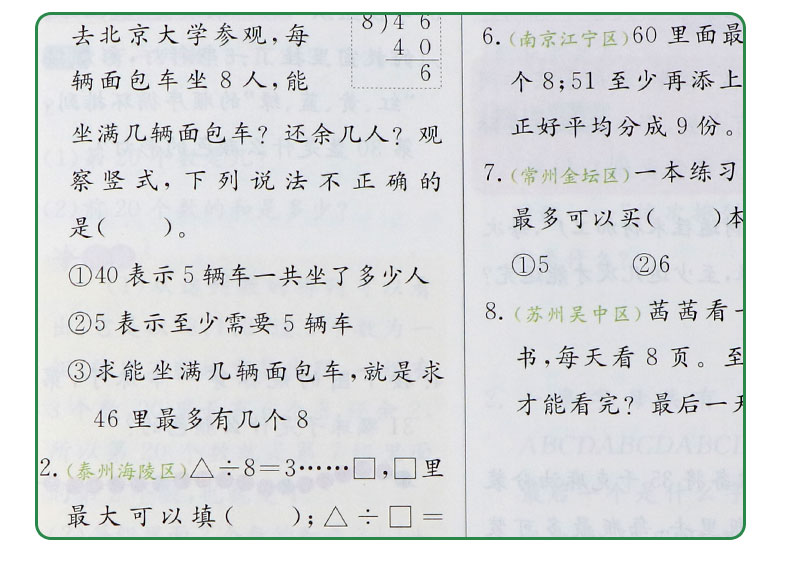 去北京大学参观,每
辆面包车坐 8 人,能
8)4 6
4 0
6
坐满几辆面包车? 还余几人? 观
察竖式,下列说法不正确的
是(　　)。
①40 表示 5 辆车一共坐了多少人
②5 表示至少需要 5 辆车
③求能坐满几辆面包车,就是求
46 里最多有几个 8
2.(泰州海陵区)△÷8=3……□,□里
最大可以填(　　);△÷□=
6.(南京江宁区)60 里面最
个 8;51 至少再添上
正好平均分成 9 份。
7.(常州金坛区)一本练习
最多可以买(　　)本
①5　　②6
8.(苏州吴中区)茜茜看一
书,每天看 8 页。至
才能看完? 最后一天